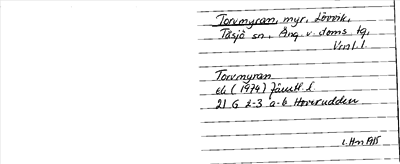 Torvmyran, myr, Lövvik,
Tåsjö sn, Ång. v. doms. tg,
Vrml. l.
Torvmyran
ek (1974) Jämtl. l.
21 G 2-3 a-b Hoverudden